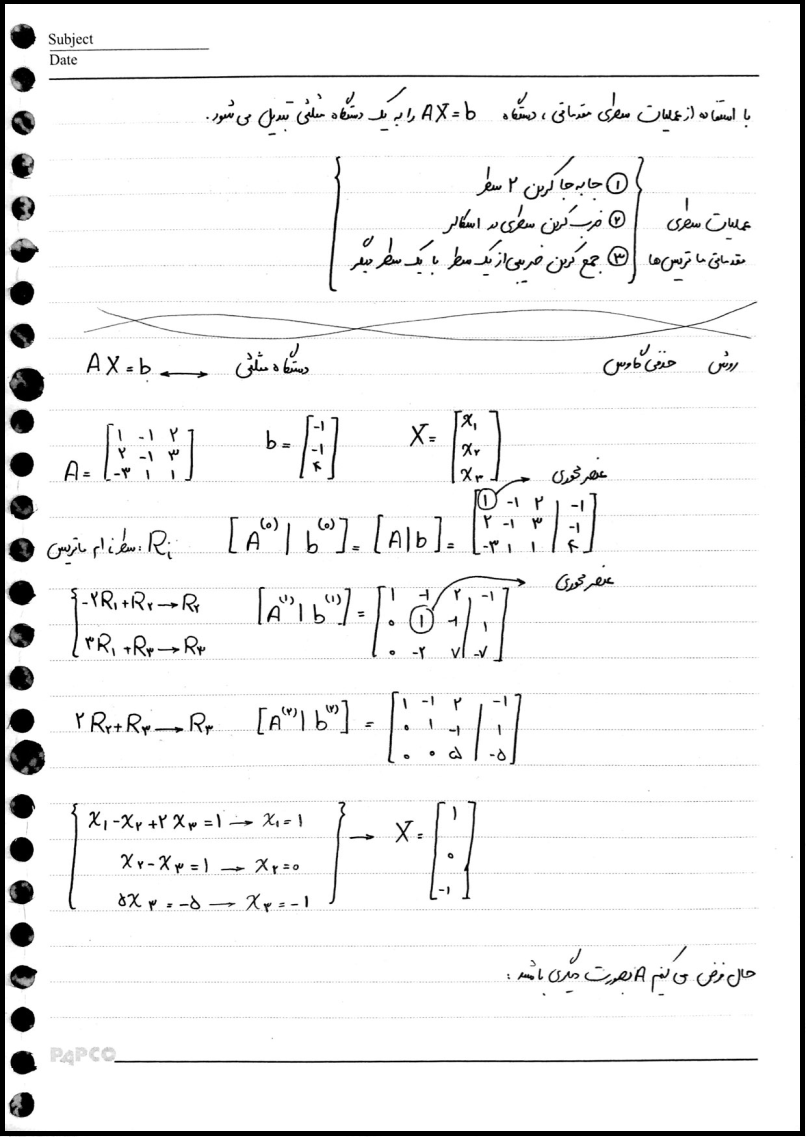 Subject
Date
با استفاده از عملیات سطری مقدماتی، دستگاه AX=b را به یک دستگاه مثلثی تبدیل می شود.
عملیات سطری مقدماتی ماتریس ها
① جابه جا کردن ۲ سطر
② ضرب کردن سطری در اسکالر
③ جمع کردن ضریبی از یک سطر با یک سطر دیگر
روش حذفی گاوس دستگاه مثلثی AX=b ⟷
A = [1 -1 ۲; ۲ -1 ۳; -۳ 1 1] b = [-1; -1; ۴] X = [x₁; x₂; x₃]
عنصر محوری
R_i : سطر i ام ماتریس [A^(0) | b^(0)] = [A|b] = [1 -1 ۲ | -1; ۲ -1 ۳ | -1; -۳ 1 1 | ۴]
عنصر محوری
{-۲R₁+R₂→R₂ ; ۳R₁+R₃→R₃ [A^(1) | b^(1)] = [1 -1 ۲ | -1; 0 1 -1 | 1; 0 -۲ ۷ | -۷]
۲R₂+R₃→R₃ [A^(۲) | b^(۲)] = [1 -1 ۲ | -1; 0 1 -1 | 1; 0 0 ۵ | -۵]
x₁-x₂+۲x₃=1 → x₁=1
x₂-x₃=1 → x₂=0
۵x₃=-۵ → x₃=-1
→ X = [1; 0; -1]
حال فرض می کنیم A بصورت دیگری باشد:
PAPCO